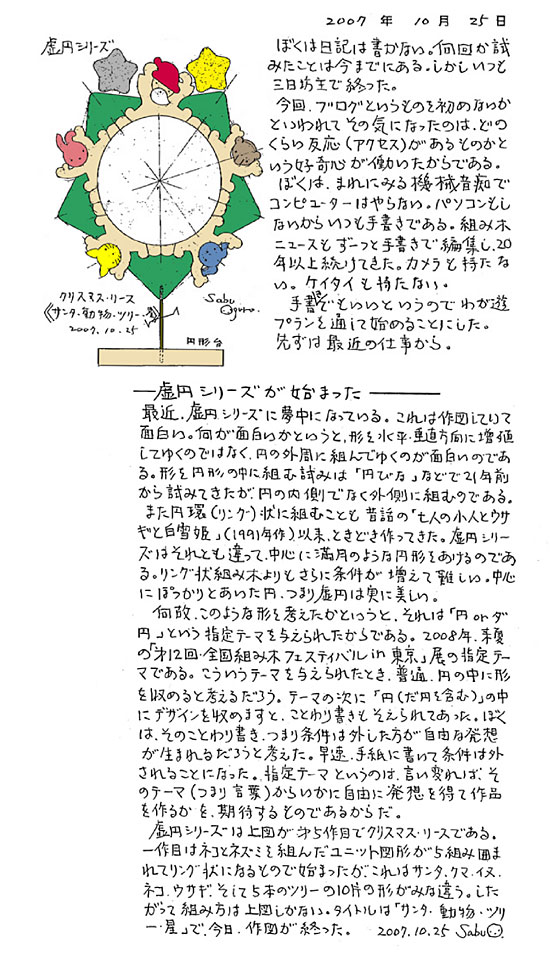 2007年10月25日
虚円シリーズ
ぼくは日記は書かない。何回か試
みたことは今までにある。しかしいつも
三日坊主で終った。
今回、ブログというものを初めないか
といわれてその気になったのは、どの
くらい反応(アクセス)があるものかと
いう好奇心が働いたからである。
ぼくは、まれにみる機械音痴で
コンピューターはやらない。パソコンもし
ないからいつも手書きである。組み木
ニュースもずーっと手書きで編集し、20
年以上続けてきた。カメラも持たな
い。ケイタイも持たない。
手書きでもいいというのでわが遊
プランを通して始めることにした。
先ずは最近の仕事から。
クリスマス・リース
《サンタ・動物・ツリー・星》
2007.10.25
Sabu
Oguro.
円形台
―虚円シリーズが始まった―
最近、虚円シリーズに夢中になっている。これは作図していて
面白い。何が面白いかというと、形を水平・垂直方向に増殖
してゆくのではなく、円の外周に組んでゆくのが面白いのであ
る。形を円形の中に組む試みは「円びな」などで21年前
から試みてきたが、円の内側でなく外側に組むのである。
また円環(リング)状に組むことも昔話の「七人の小人とウサ
ギと白雪姫」(1991年作)以来、ときどき作ってきた。虚円シリー
ズはそれとも違って、中心に満月のような円形をあけるのであ
る。リング状組み木よりもさらに条件が増えて難しい。中心
にぽっかりとあいた円、つまり虚円は実に美しい。
何故、このような形を考えたかというと、それは「円orダ
円」という指定テーマを与えられたからである。2008年、来夏
の「第12回・全国組み木フェスティバルin東京」展の指定テー
マである。こういうテーマを与えられたとき、普通、円の中に形
を収めると考えるだろう。テーマの次に「円(だ円を含む)」の中
にデザインを収めますと、ことわり書きもそえられてあった。ぼく
は、そのことわり書き、つまり条件は外した方が自由な発想
が生まれるだろうと考えた。早速、手紙に書いて条件は外
されることになった。指定テーマというのは、言い変れば、そ
のテーマ(つまり言葉)からいかに自由に発想を得て作品
を作るかを、期待するものであるからだ。
虚円シリーズは上図が第5作目でクリスマス・リースである。
一作目はネコとネズミを組んだユニット図形が5組み囲ま
れてリング状になるもので始まったが、これはサンタ、クマ、イヌ、
ネコ、ウサギ、そして5本のツリーの10片の形がみな違う。した
がって組み方は上図しかない。タイトルは「サンタ・動物・ツリ
ー・星」で、今日、作図が終った。 2007.10.25 Sabu